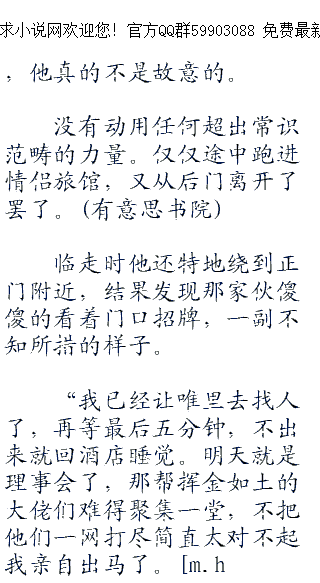 求小说网欢迎您! 官方QQ群59903088 免费最新
，他真的不是故意的。
没有动用任何超出常识
范畴的力量。仅仅途中跑进
情侣旅馆，又从后门离开了
罢了。(有意思书院)
临走时他还特地绕到正
门附近，结果发现那家伙傻
傻的看着门口招牌，一副不
知所措的样子。
“我已经让唯里去找人
了，再等最后五分钟，不出
来就回酒店睡觉。明天就是
理事会了，那帮挥金如土的
大佬们难得聚集一堂，不把
他们一网打尽简直太对不起
我亲自出马了。[m.h